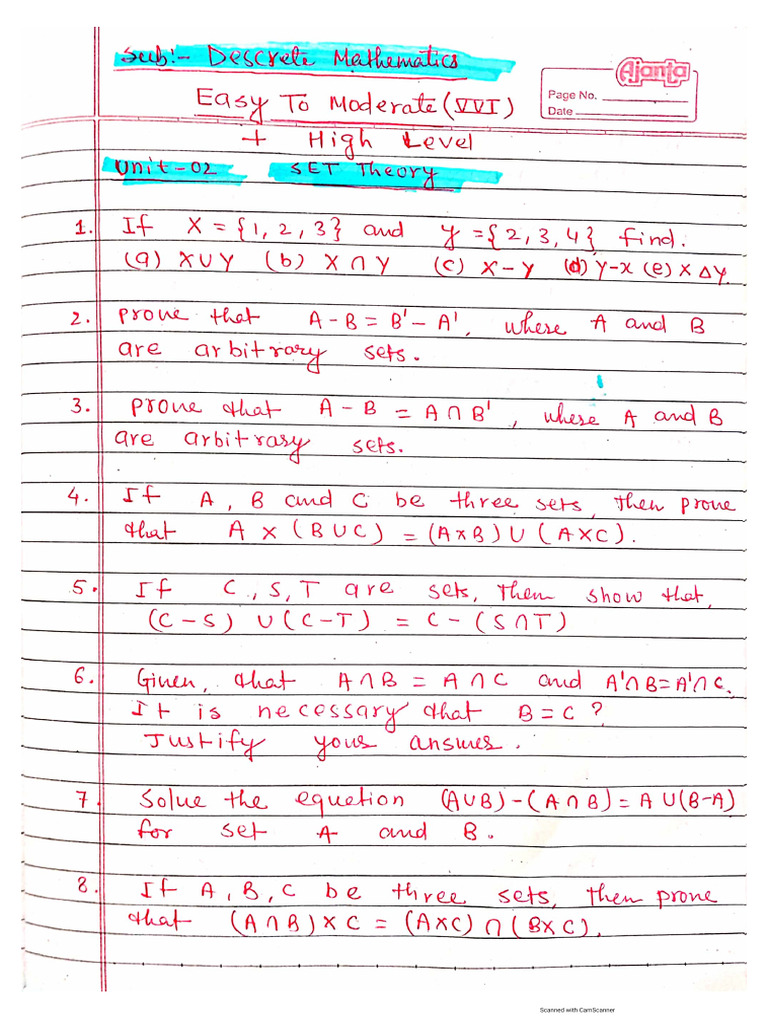 Sub:- Descrete Mathematics
Ajanta
Easy To Moderate (VVI)
Page No.
Date
+ High Level
Unit-02 SET Theory
1. If X = {1, 2, 3} and y = {2, 3, 4} find.
(a) X ∪ Y (b) X ∩ Y (c) X - Y (d) Y-x (e) X Δ Y.
2. prove that A - B = B' - A', where A and B
are arbitrary sets.
3. prove that A - B = A ∩ B', where A and B
are arbitrary sets.
4. If A, B and C be three sets, then prove
that A × (B ∪ C) = (A×B) ∪ (A×C).
5. If C, S, T are sets, then show that,
(C - S) ∪ (C - T) = C - (S ∩ T)
6. Given, that A ∩ B = A ∩ C and A'∩B = A'∩C.
It is necessary that B = C ?
Justify your answer.
7. Solve the equetion (A∪B) - (A∩B) = A ∪ (B-A)
for set A and B.
8. If A, B, C be three sets, then prove
that (A∩B) × C = (A×C) ∩ (B×C).
Scanned with CamScanner